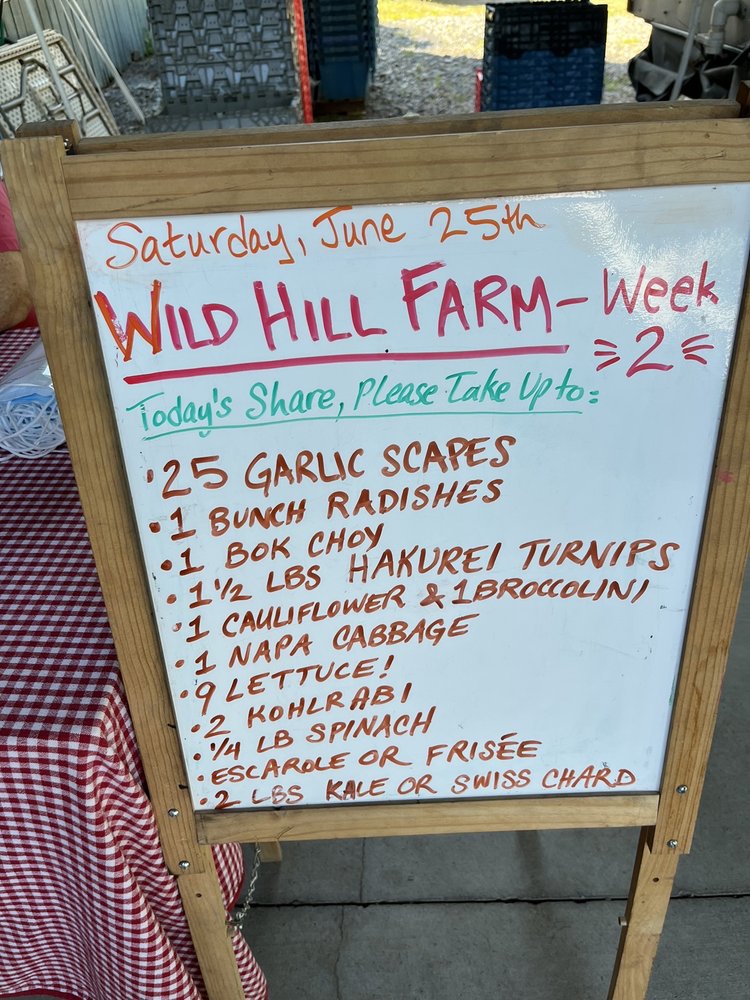 Saturday, June 25th
WILD HILL FARM - Week
2
Today's Share, Please Take Up to:
• 25 GARLIC SCAPES
• 1 BUNCH RADISHES
• 1 BOK CHOY
• 1 1/2 LBS HAKUREI TURNIPS
• 1 CAULIFLOWER & 1 BROCCOLINI
• 1 NAPA CABBAGE
• 9 LETTUCE!
• 2 KOHLRABI
• 1/4 LB SPINACH
• ESCAROLE OR FRISÉE
• 2 LBS KALE OR SWISS CHARD